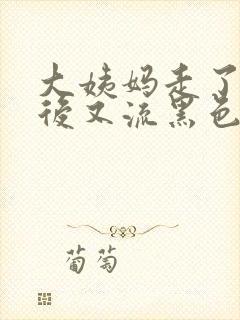 大姨妈走了
後又流黑色
葡萄